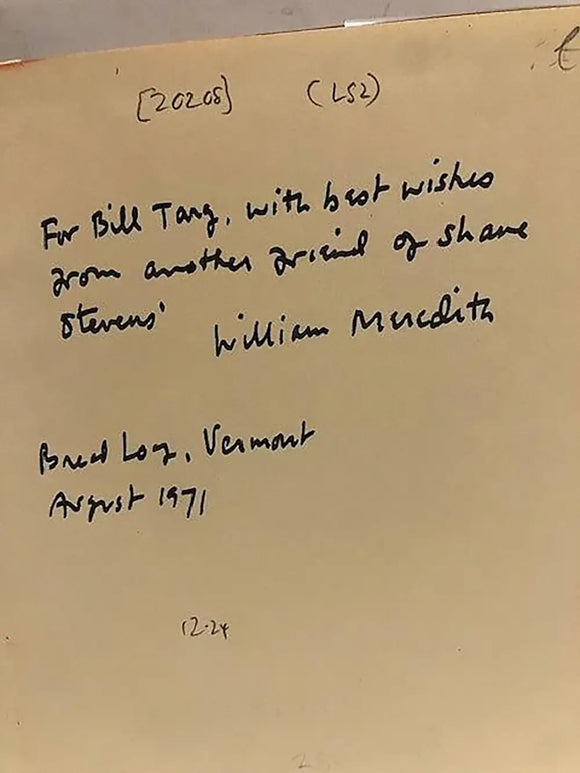 [20205] (LS2)
For Bill Targ, with best wishes
from another friend of Shane
Stevens'
William Meredith
Bread Loaf, Vermont
August 1971
12.24